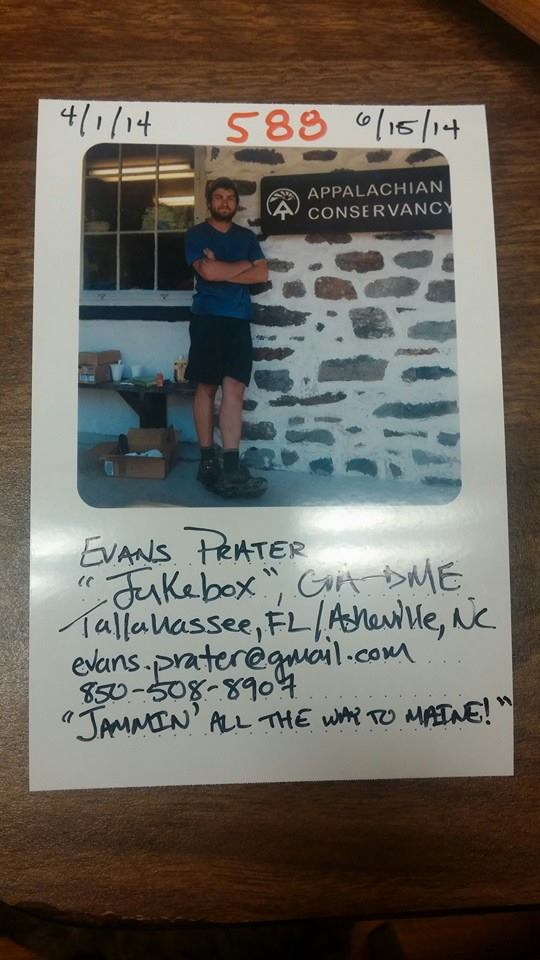 4/1/14 588 6/15/14
APPALACHIAN
CONSERVANCY
EVANS PRATER
"Jukebox", GA→ME
Tallahassee, FL/Asheville, NC
evans.prater@gmail.com
850-508-8907
"JAMMIN' ALL THE WAY TO MAINE!"